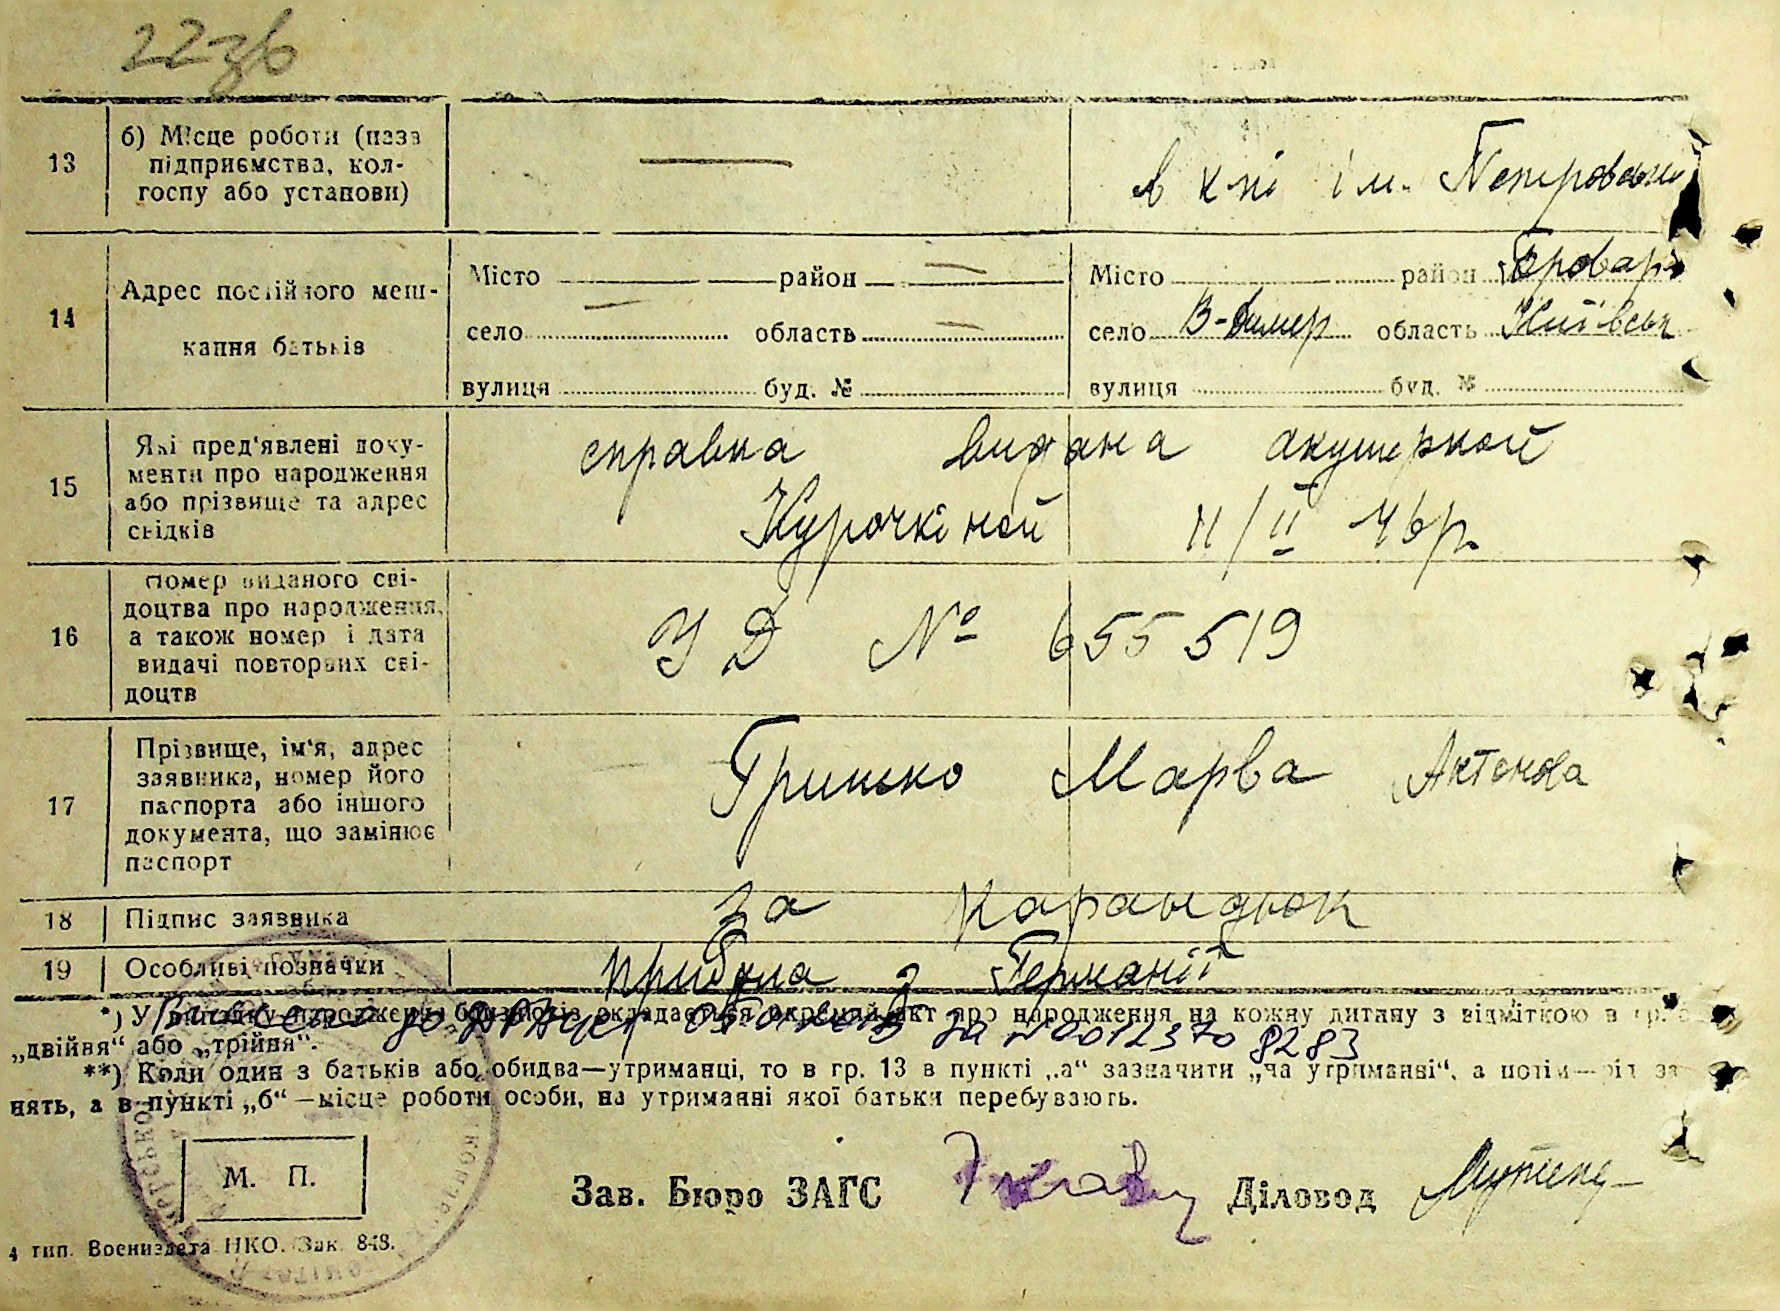 22зв
13 б) Місце роботи (назва підприємства, колгоспу або установи) — в к-пі ім. Петровськ
14 Адрес постійного мешкання батьків
Місто район — Місто район Бровар
село — область — село В-Димер область Київськ
вулиця буд. № вулиця буд. №
15 Які пред'явлені документи про народження або прізвище та адрес свідків
справка видана акушеркой
Курочкіной 11/II 46р.
16 Номер виданого свідоцтва про народження, а також номер і дата видачі повторних свідоцтв
УД № 655519
17 Прізвище, ім'я, адрес заявника, номер його паспорта або іншого документа, що замінює паспорт
Гришко Марва
18 Підпис заявника
за Карандюк
19 Особливі позначки
прибула з Германії
*) У випадку народження близнюків складається окремий акт про народження на кожну дитину з відміткою в гр.
за № 0012370 8283
„двійня“ або „трійня“.
**) Коли один з батьків або обидва—утриманці, то в гр. 13 в пункті „а“ зазначити „на утриманні“, а потім—рід за
нять, а в пункті „б“—місце роботи особи, на утриманні якої батьки перебувають.
М. П.
Зав. Бюро ЗАГС Діловод
4 тип. Воениздата НКО. Зак. 848.